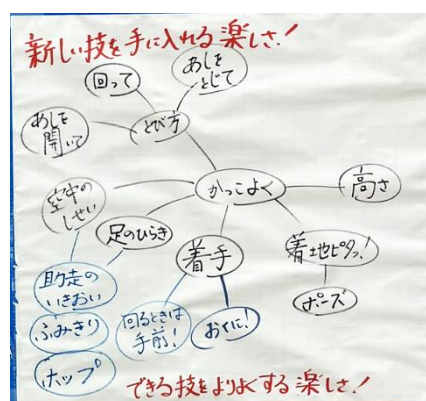 新しい技を手に入れる楽しさ!
あしを
とじて
回って
とび方
あしを
開いて
かっこよく
高さ
空中の
しせい
足のひらき
着手
着地ピタッ!
ポーズ
助走の
いきおい
ふみきり
ホップ
回るときは
手前!
おくに!
できる技をよりよくする楽しさ!